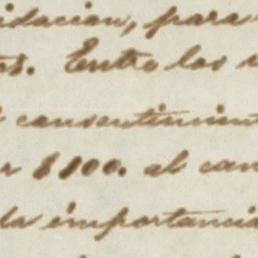 idacion, para
es. Entre los
consentimient
r $100. al can
da importancia